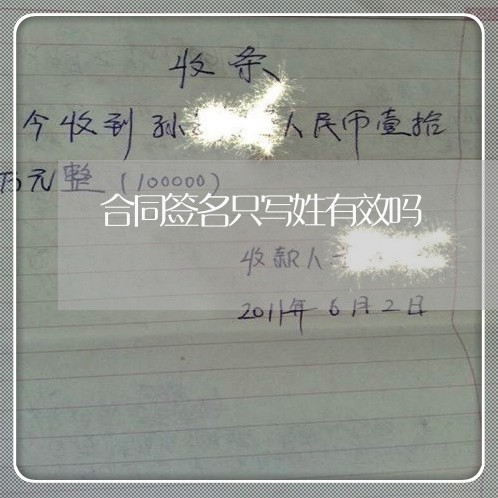 收条
今收到 孙 人民币壹拾
万元整（100000）
合同签名只写姓有效吗
收款人
2011年6月2日